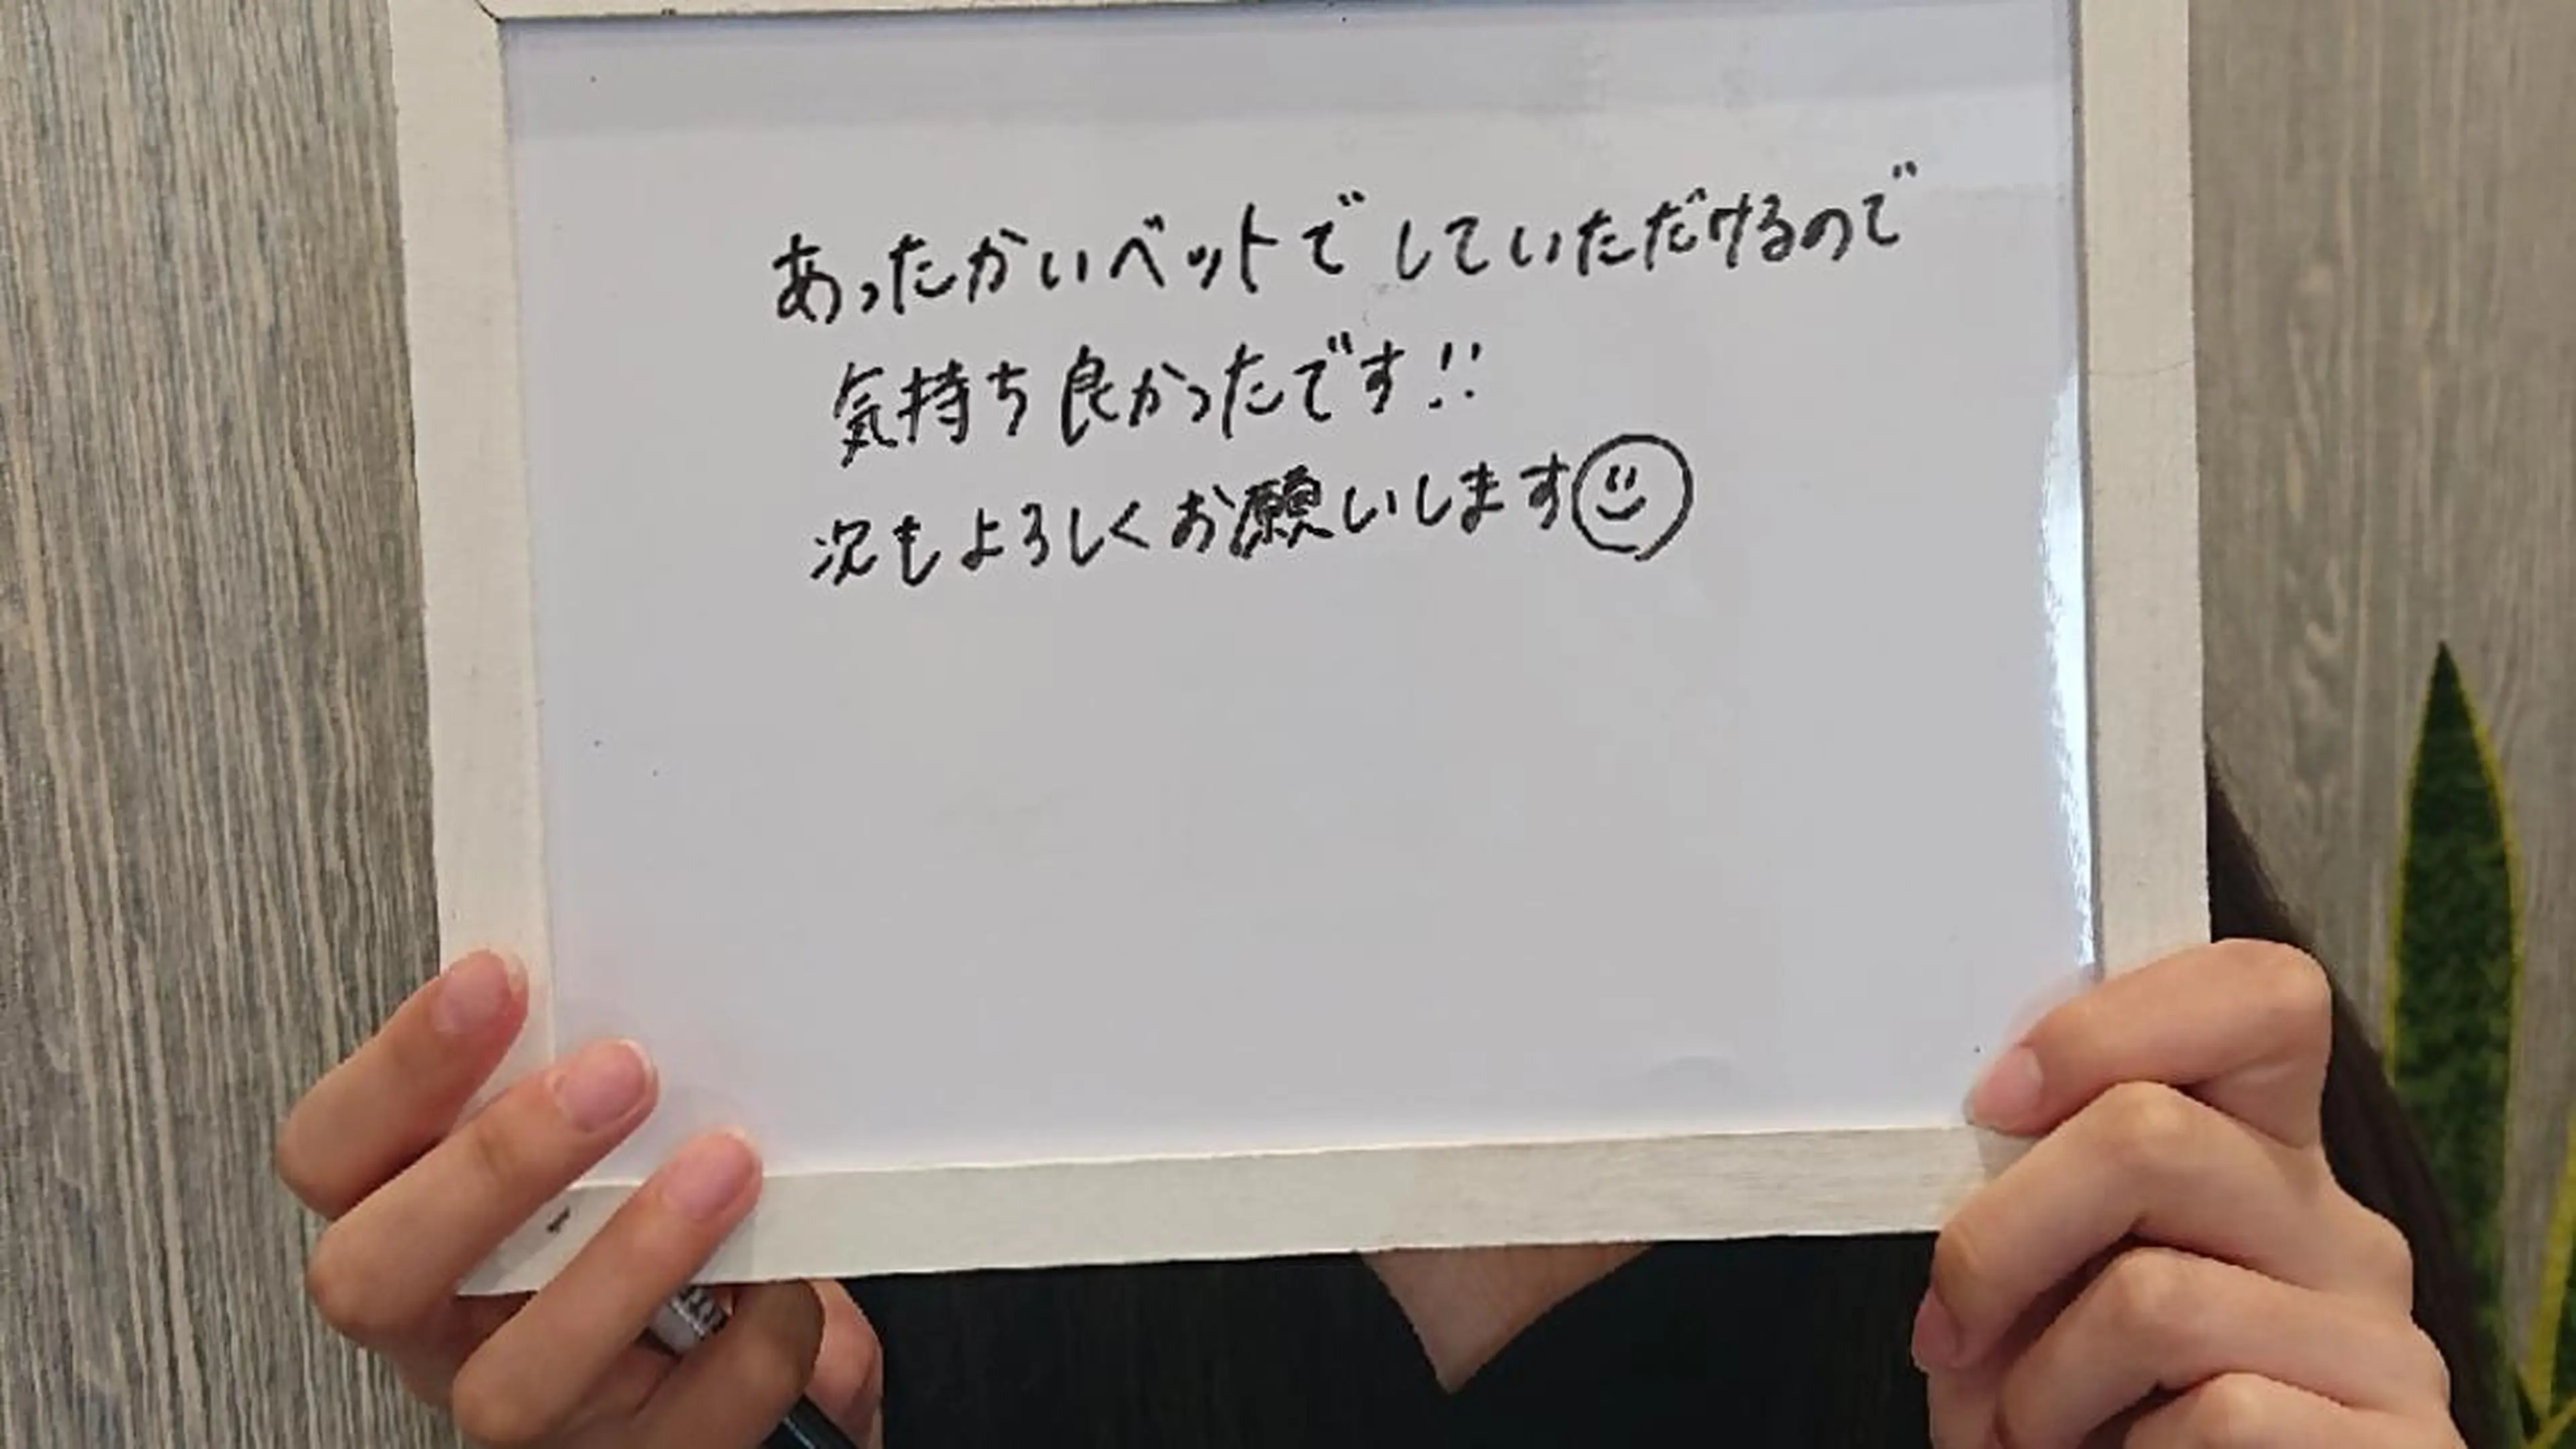 あったかいベットでしていただけるので
気持ち良かったです!!
次もよろしくお願いします